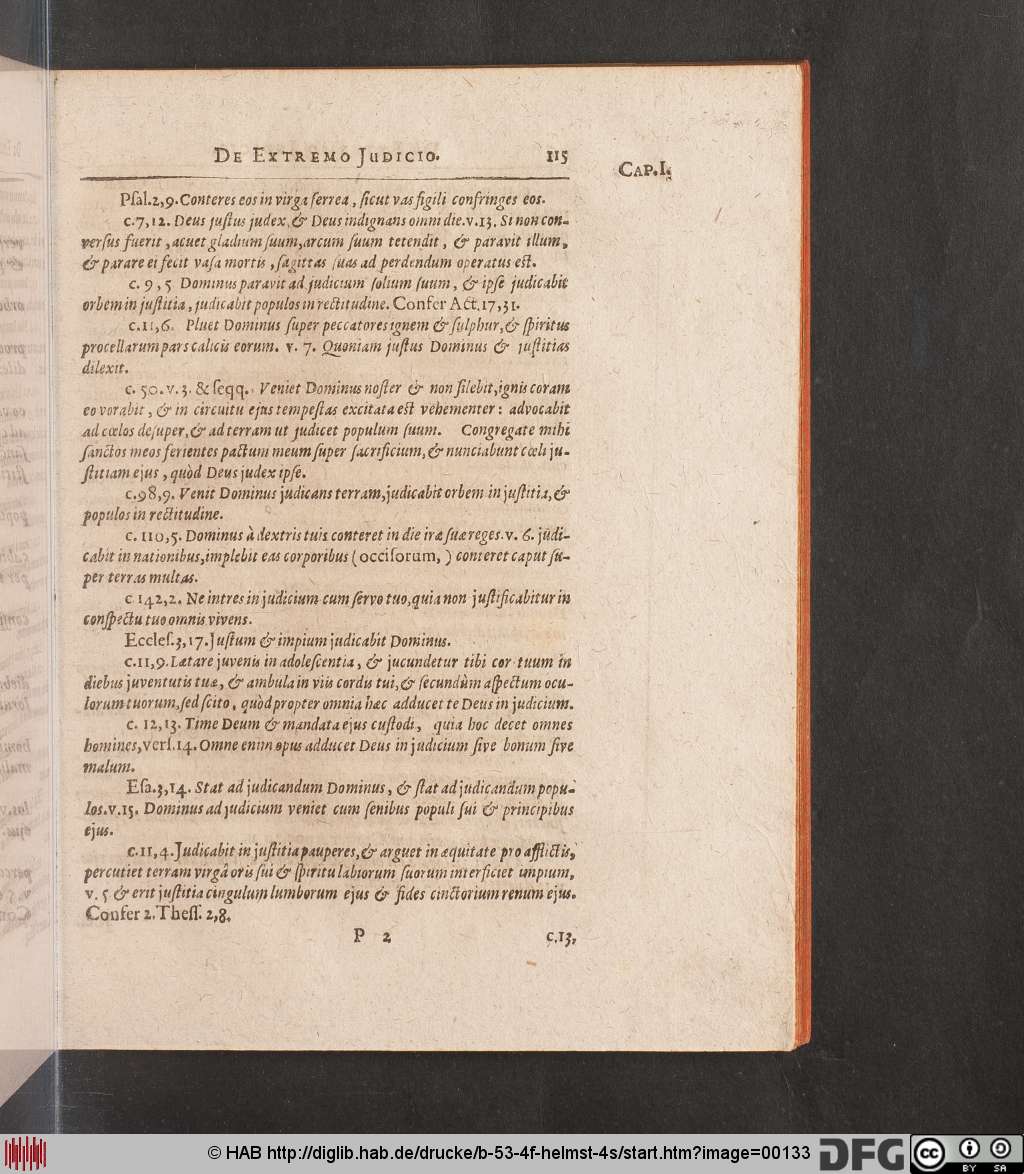 DE EXTREMO JUDICIO. 115
CAP. I.
Psal. 2, 9. Conteres eos in virga ferrea, sicut vas figili confringes eos.
c. 7, 12. Deus justus judex, & Deus indignans omni die. v. 13. Si non con-
versus fuerit, acuet gladium suum, arcum suum tetendit, & paravit illum,
& parare ei fecit vasa mortis, sagittas suas ad perdendum operatus est.
c. 9, 5 Dominus paravit ad judicium solium suum, & ipse judicabit
orbem in justitia, judicabit populos in rectitudine. Confer Act. 17, 31.
c. 11, 6. Pluet Dominus super peccatores ignem & sulphur, & spiritus
procellarum pars calicis eorum. v. 7. Quoniam justus Dominus & justitias
dilexit.
c. 50. v. 3. & seqq. Veniet Dominus noster & non silebit, ignis coram
eo vorabit, & in circuitu ejus tempestas excitata est vehementer: advocabit
ad cœlos desuper, & ad terram ut judicet populum suum. Congregate mihi
sanctos meos ferientes pactum meum super sacrificium, & nunciabunt cœli ju-
stitiam ejus, quòd Deus judex ipse.
c. 98, 9. Venit Dominus judicans terram, judicabit orbem in justitia, &
populos in rectitudine.
c. 110, 5. Dominus à dextris tuis conteret in die iræ suæ reges. v. 6. judi-
cabit in nationibus, implebit eas corporibus (occisorum,) conteret caput su-
per terras multas.
c. 142, 2. Ne intres in judicium cum servo tuo, quia non justificabitur in
conspectu tuo omnis vivens.
Eccles. 3, 17. Justum & impium judicabit Dominus.
c. 11, 9. Lætare juvenis in adolescentia, & jucundetur tibi cor tuum in
diebus juventutis tuæ, & ambula in viis cordis tui, & secundùm aspectum ocu-
lorum tuorum, sed scito, quòd propter omnia hæc adducet te Deus in judicium.
c. 12, 13. Time Deum & mandata ejus custodi, quia hoc decet omnes
homines, vers. 14. Omne enim opus adducet Deus in judicium sive bonum sive
malum.
Esa. 3, 14. Stat ad judicandum Dominus, & stat ad judicandum popu-
los. v. 15. Dominus ad judicium veniet cum senibus populi sui & principibus
ejus.
c. 11, 4. Judicabit in justitia pauperes, & arguet in æquitate pro afflictis,
percutiet terram virgâ oris sui & spiritu labiorum suorum interficiet impium,
v. 5 & erit justitia cingulum lumborum ejus & fides cinctorium renum ejus.
Confer 2. Thess. 2, 8.
P 2 c. 13,
© HAB http://diglib.hab.de/drucke/b-53-4f-helmst-4s/start.htm?image=00133 DFG cc BY SA